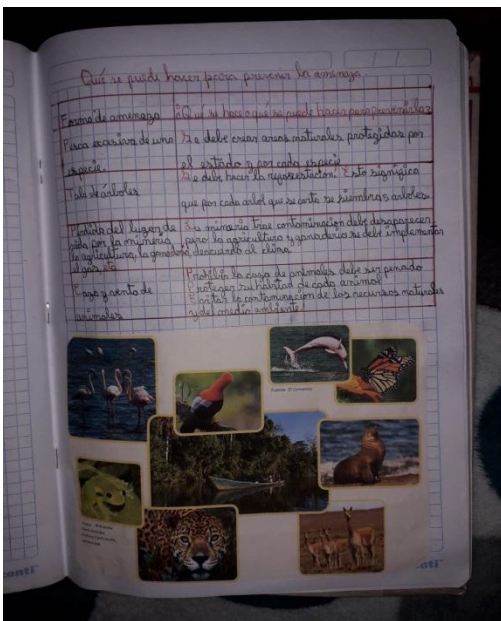 Qué se puede hacer para prevenir la amenaza.
Forma de amenaza
¿Qué se hace o qué se puede hacer para prevenirlas?
Pesca excesiva de una especie.
Se debe crear areas naturales protegidas por
el estado y por cada especie
Tala de árboles
Se debe hacer la reforestacion. Esto significa
que por cada arbol que se corte se siembras arboles
Pérdida del lugar de
vida por la mineria,
la agricultura, la ganadería,
el gas, etc
La mineria trae contaminacion debe desaparecer
pero la agricultura y ganaderia se debe implementar
deacuerdo al clima.
Caza y venta de
animales
Prohibir la caza de animales debe ser penado
Proteger su habitad de cada animal
Evitar la contaminacion de los recursos naturales
y del medio ambiente.